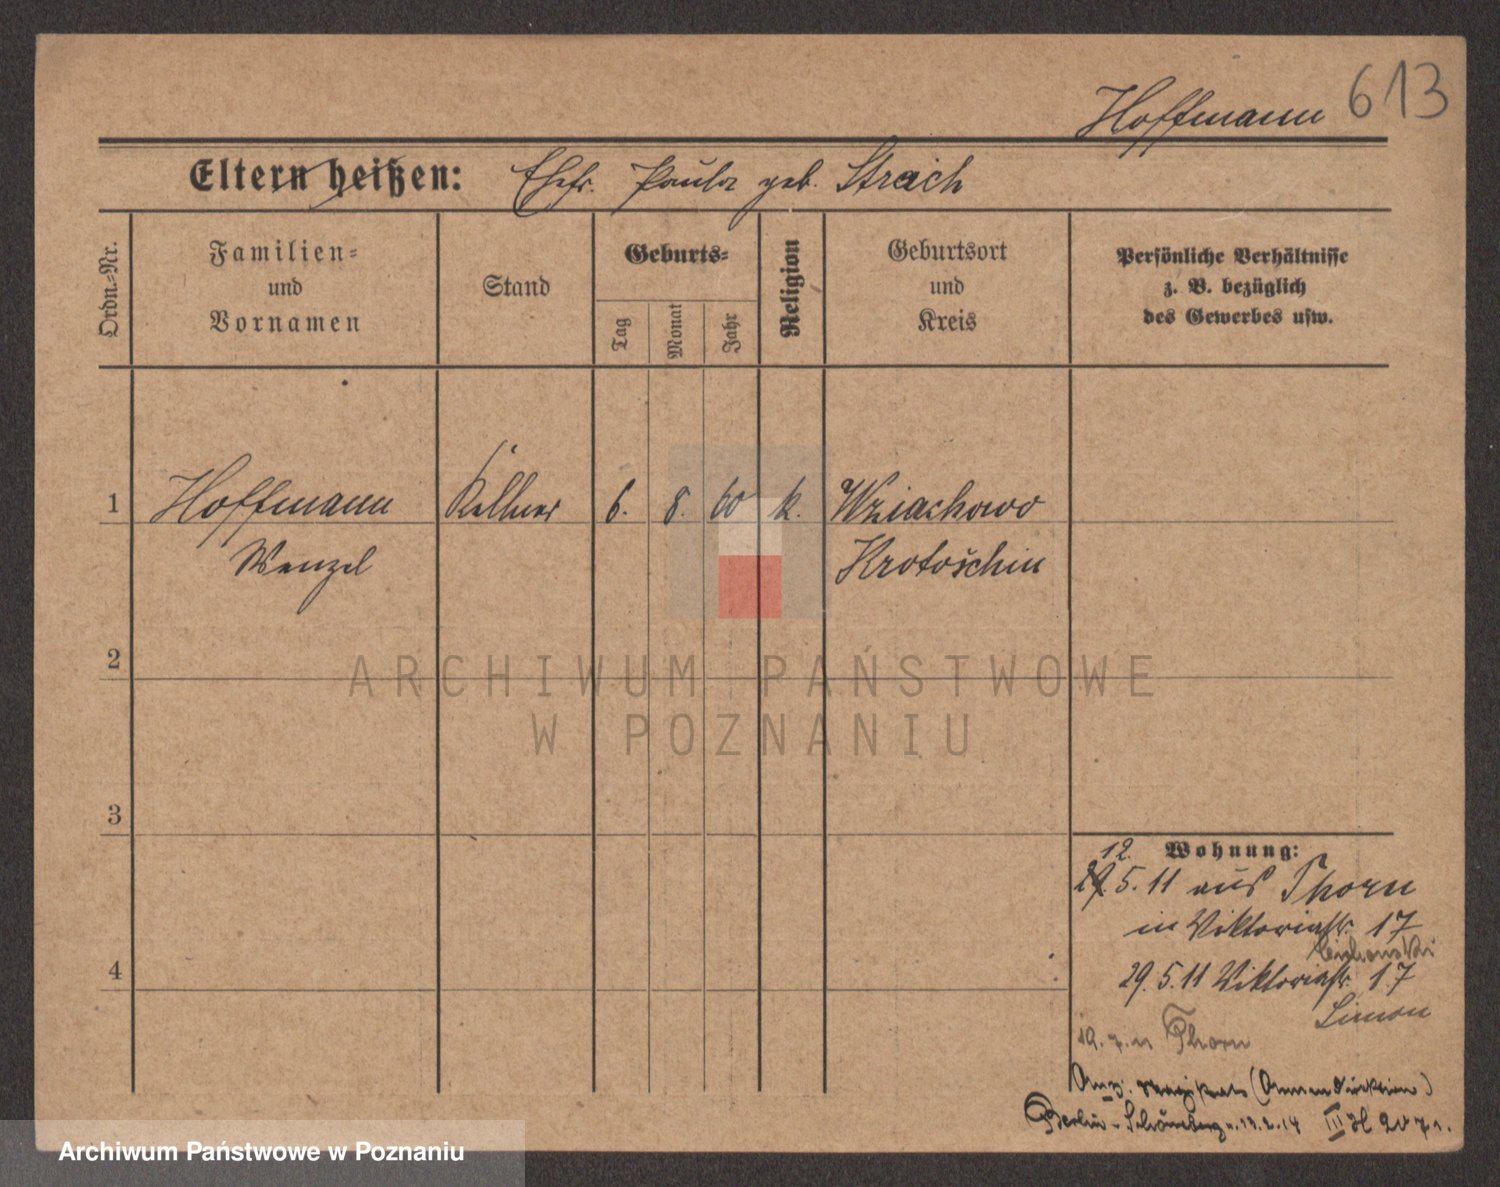 Hoffmann 613
Eltern heißen: Ehefr. Paula geb. Strach
Ordn.-Nr.
Familien-
und
Vornamen
Stand
Geburts-
Tag
Monat
Jahr
Religion
Geburtsort
und
Kreis
Persönliche Verhältnisse
z. B. bezüglich
des Gewerbes usw.
1 Hoffmann Kellner 6. 8. 60 k. Wziachowo
Wenzel Krotoschin
2
ARCHIWUM PAŃSTWOWE
W POZNANIU
3
12. Wohnung:
29. 5. 11 aus Thorn
in Viktoriastr. 17
29. 5. 11 Viktoriastr. 17
Simon
4
19. 7. 11 Thorn
Berlin-Schöneberg v. 13.2.14 III H 2071.
Archiwum Państwowe w Poznaniu